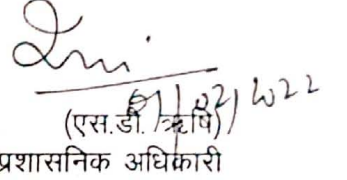 01/02/2022
(एस.डी. ऋषि)
प्रशासनिक अधिकारी